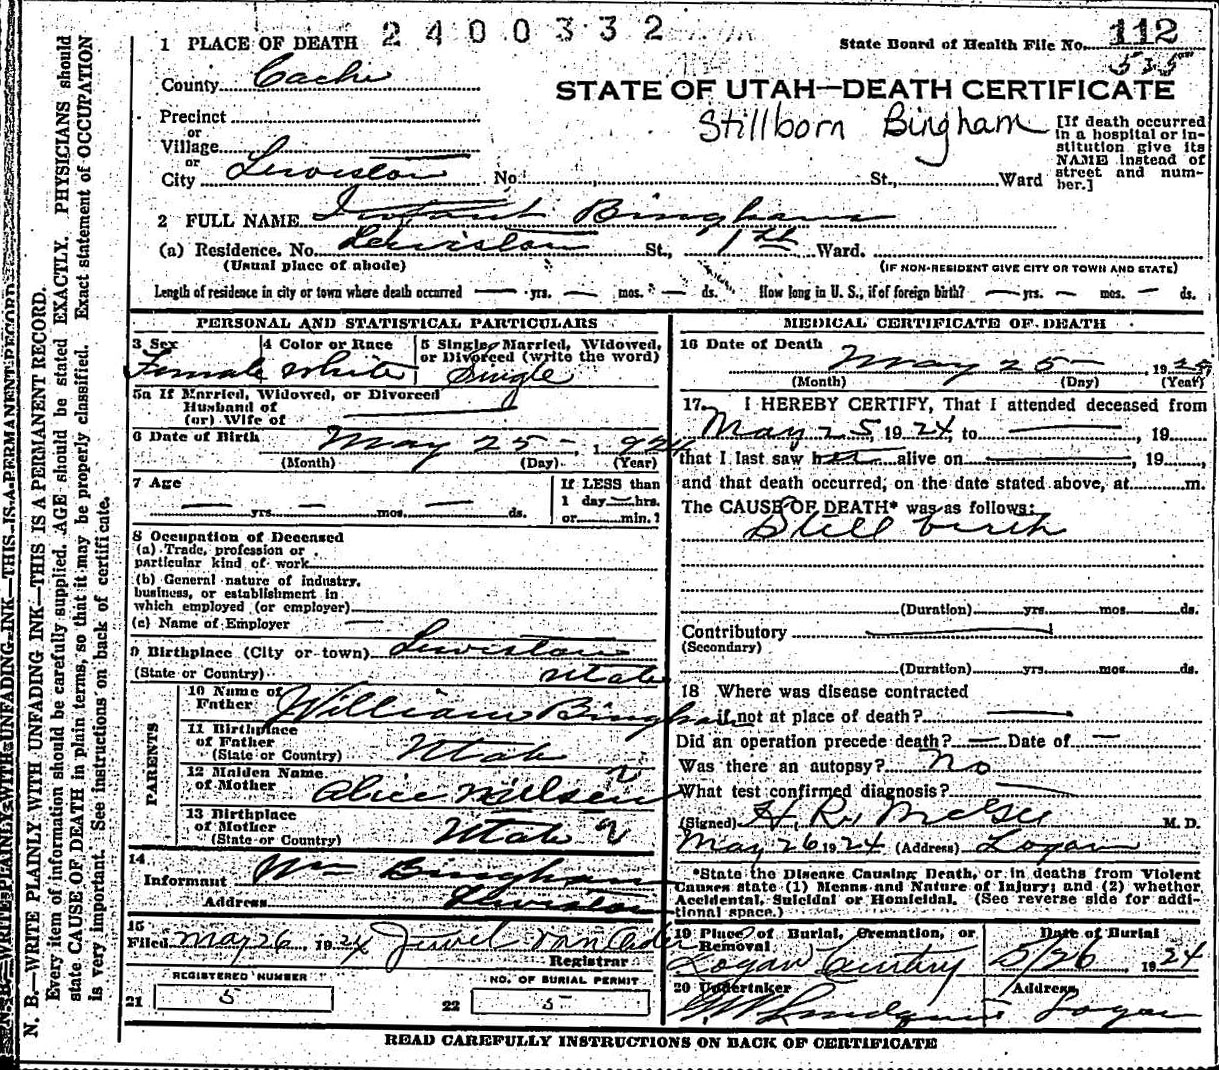 2400332
1 PLACE OF DEATH
State Board of Health File No. 112
535
County Cache
STATE OF UTAH—DEATH CERTIFICATE
Stillborn Bingham
Precinct
or
Village
or
City Lewiston No. St., Ward
[If death occurred
in a hospital or in-
stitution give its
NAME instead of
street and num-
ber.]
2 FULL NAME Infant Bingham
(a) Residence. No. Lewiston St., 1st Ward.
(Usual place of abode)
(IF NON-RESIDENT GIVE CITY OR TOWN AND STATE)
Length of residence in city or town where death occurred — yrs. — mos. — ds. How long in U. S., if of foreign birth? — yrs. — mos. — ds.
PERSONAL AND STATISTICAL PARTICULARS
3 Sex 4 Color or Race 5 Single, Married, Widowed,
or Divorced (write the word)
Female White Single
5a If Married, Widowed, or Divorced
Husband of
(or) Wife of
6 Date of Birth May 25 — 1924
(Month) (Day) (Year)
7 Age
— yrs. — mos. — ds.
If LESS than
1 day — hrs.
or min.?
8 Occupation of Deceased
(a) Trade, profession or
particular kind of work
(b) General nature of industry,
business, or establishment in
which employed (or employer)
(c) Name of Employer —
9 Birthplace (City or town) Lewiston
(State or Country) Utah
PARENTS
10 Name of
Father William Bingham
11 Birthplace
of Father
(State or Country) Utah
12 Maiden Name
of Mother Alice Nielsen
13 Birthplace
of Mother
(State or Country) Utah
14
Informant Wm Bingham
Address Lewiston
15
Filed May 26 1924 Jewel Van Orden
Registrar
REGISTERED NUMBER
21 5
NO. OF BURIAL PERMIT
22 5
MEDICAL CERTIFICATE OF DEATH
16 Date of Death
May 25 — 1924
(Month) (Day) (Year)
17. I HEREBY CERTIFY, That I attended deceased from
May 25, 1924, to —, 19
that I last saw her alive on —, 19
and that death occurred, on the date stated above, at m.
The CAUSE OF DEATH* was as follows:
Still birth
(Duration) yrs. mos. ds.
Contributory
(Secondary)
(Duration) yrs. mos. ds.
18 Where was disease contracted
if not at place of death? —
Did an operation precede death? — Date of —
Was there an autopsy? No
What test confirmed diagnosis? —
(Signed) H. R. McGee M. D.
May 26 1924 (Address) Logan
*State the Disease Causing Death, or in deaths from Violent
Causes state (1) Means and Nature of Injury; and (2) whether
Accidental, Suicidal or Homicidal. (See reverse side for addi-
tional space.)
19 Place of Burial, Cremation, or
Removal
Date of Burial
Logan Cemetery 5/26, 1924
20 Undertaker
Address
Logan
READ CAREFULLY INSTRUCTIONS ON BACK OF CERTIFICATE
N. B.—WRITE PLAINLY WITH UNFADING INK—THIS IS A PERMANENT RECORD
N. B.—WRITE PLAINLY WITH UNFADING INK—THIS IS A PERMANENT RECORD.
Every item of information should be carefully supplied. AGE should be stated EXACTLY. PHYSICIANS should
state CAUSE OF DEATH in plain terms, so that it may be properly classified. Exact statement of OCCUPATION
is very important. See instructions on back of certificate.